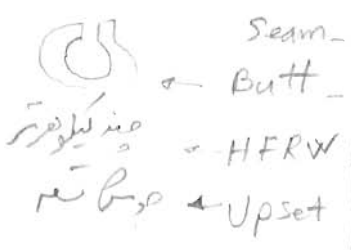 Seam -
Butt -
چند کیلو هرتز - HFRW
جوش شعله ← Upset